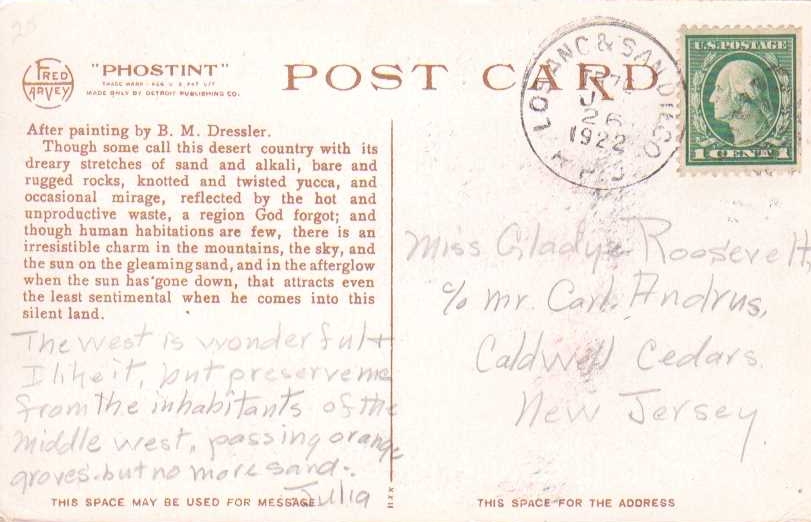 25
FRED
HARVEY
"PHOSTINT"
TRADE MARK-REG U.S. PAT OFF
MADE ONLY BY DETROIT PUBLISHING CO.
POST CARD
LOS ANG & SAN DIEGO
26
1922
R.P.O
U.S. POSTAGE
1 CENT 1
After painting by B. M. Dressler.
Though some call this desert country with its
dreary stretches of sand and alkali, bare and
rugged rocks, knotted and twisted yucca, and
occasional mirage, reflected by the hot and
unproductive waste, a region God forgot; and
though human habitations are few, there is an
irresistible charm in the mountains, the sky, and
the sun on the gleaming sand, and in the afterglow
when the sun has gone down, that attracts even
the least sentimental when he comes into this
silent land.
The west is wonderful +
I like it, but preserve me
from the inhabitants of the
middle west, passing orange
groves but no more sand.
Julia
THIS SPACE MAY BE USED FOR MESSAGE
Miss Gladys Roosevelt,
c/o Mr. Carl Andrus,
Caldwell Cedars.
New Jersey.
THIS SPACE FOR THE ADDRESS